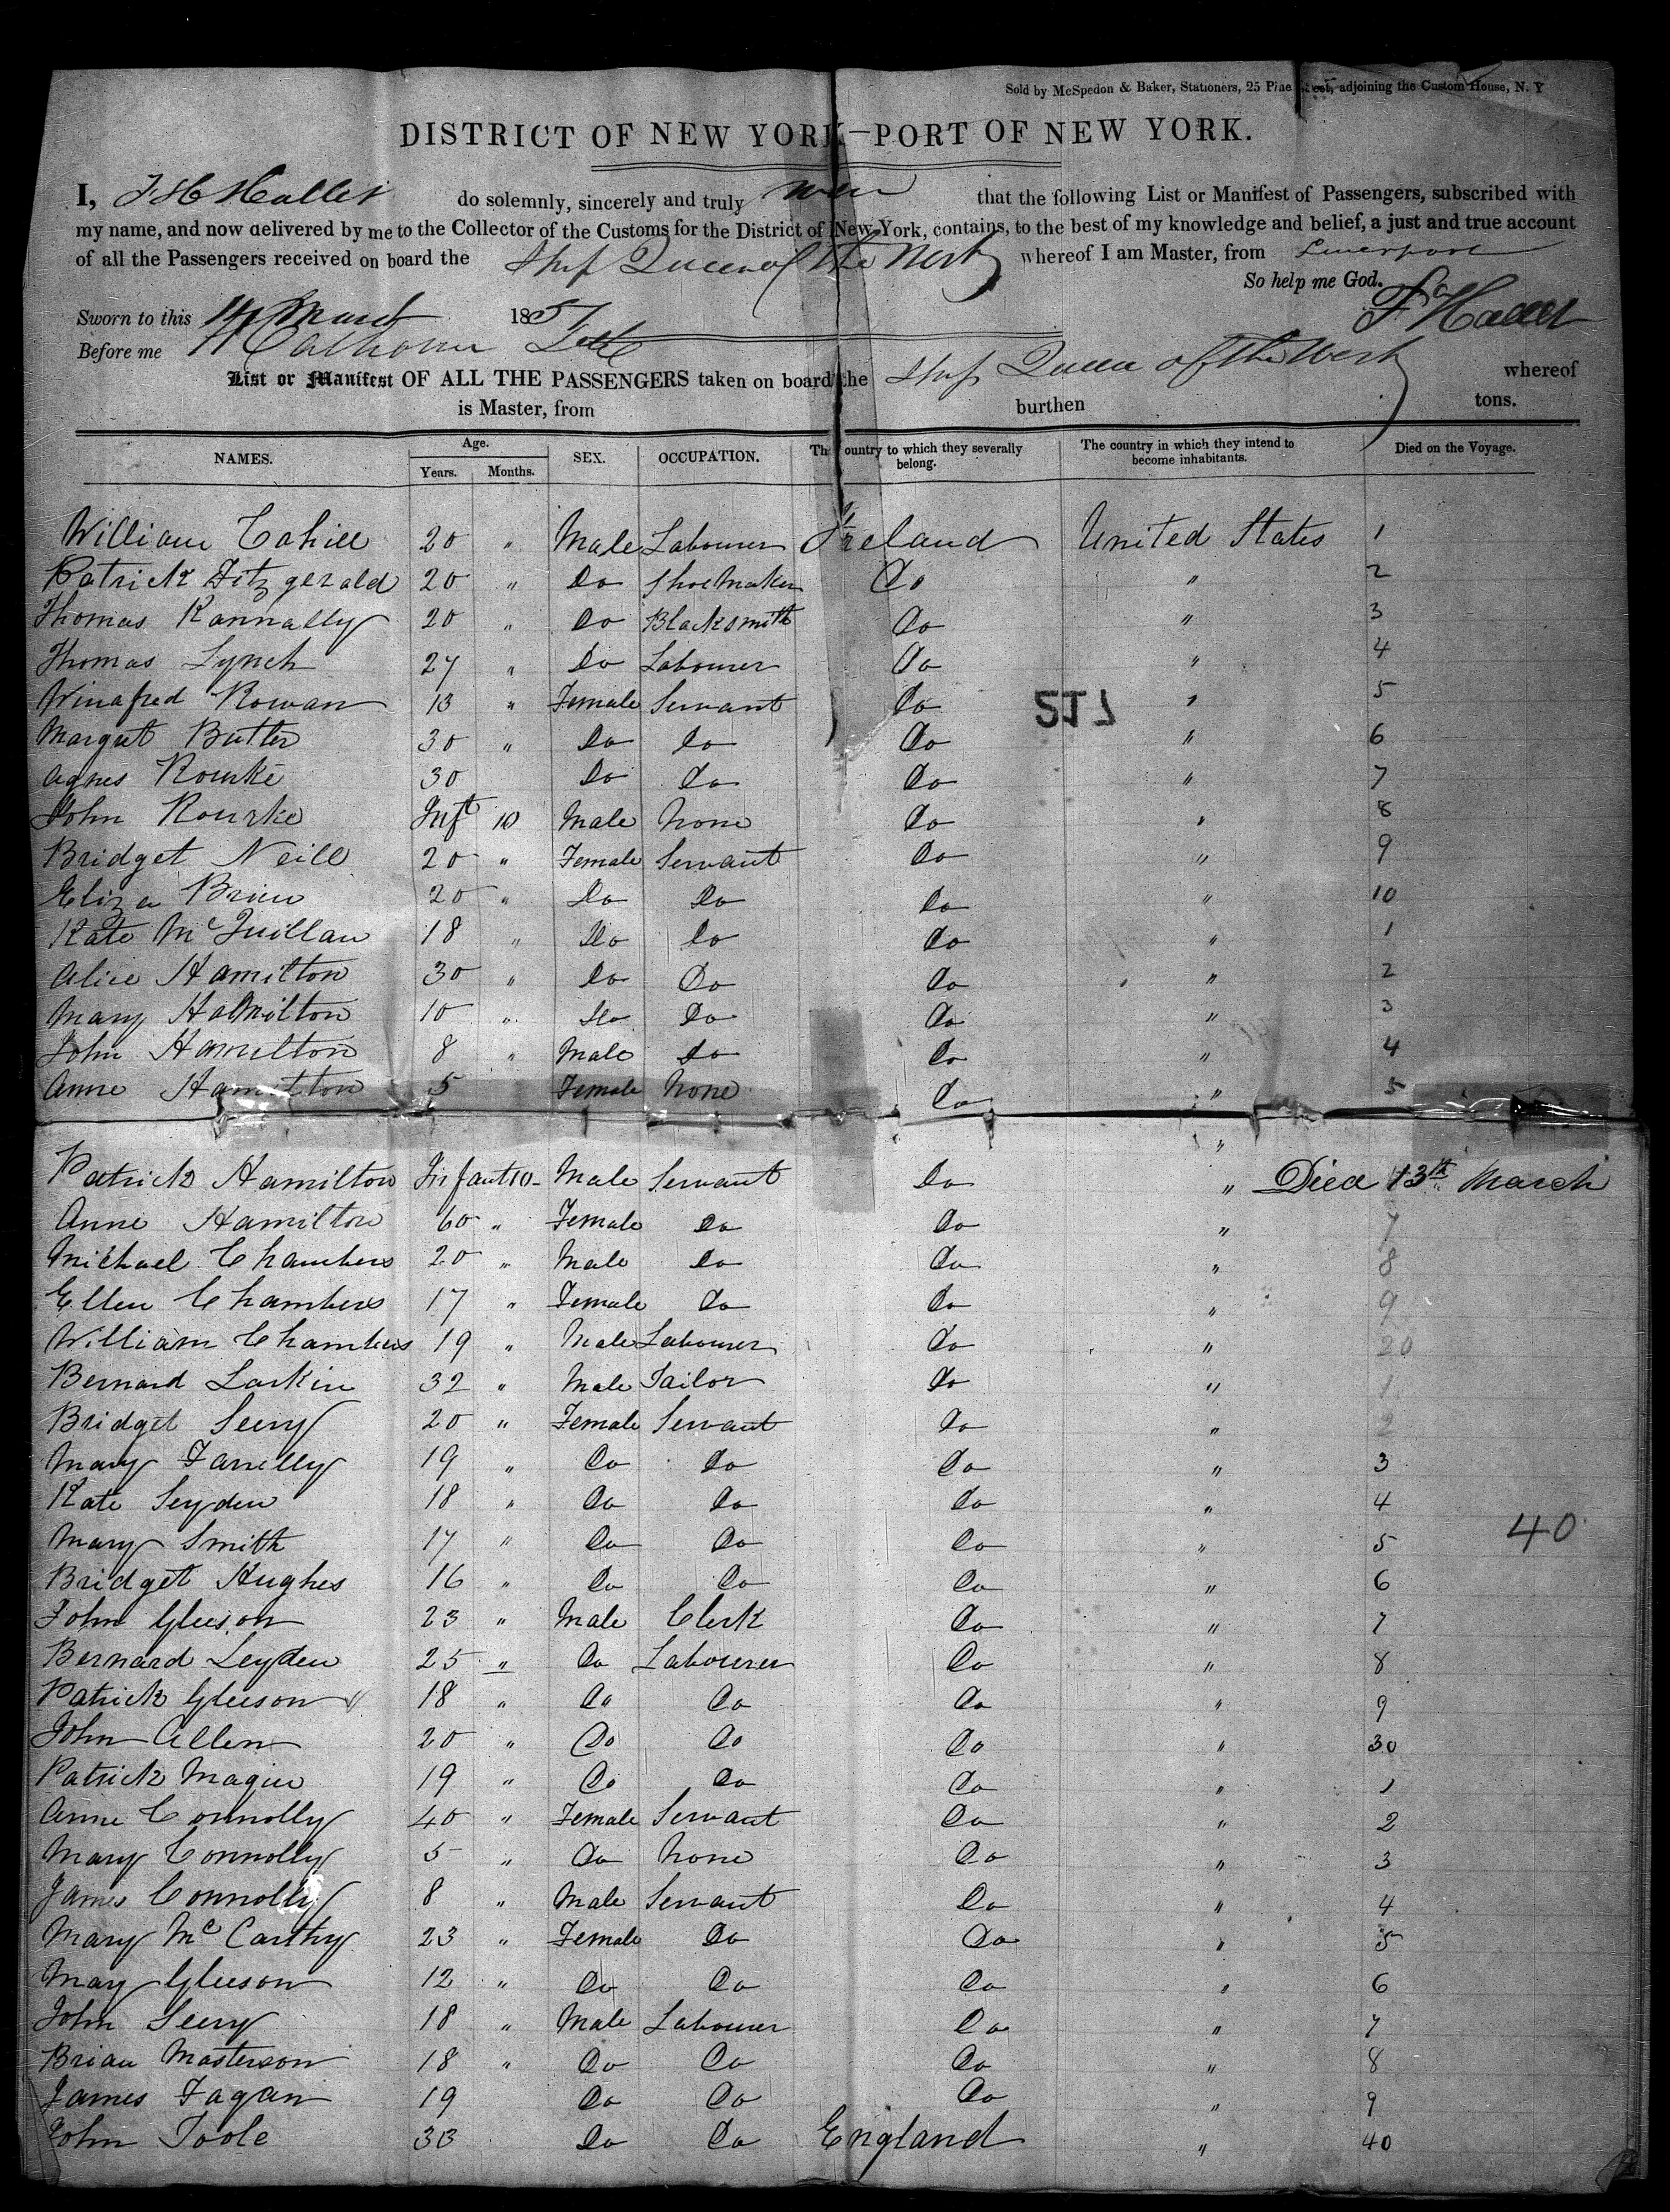 Sold by McSpedon & Baker, Stationers, 25 Pine Street, adjoining the Custom House, N. Y
DISTRICT OF NEW YORK—PORT OF NEW YORK.
I, do solemnly, sincerely and truly that the following List or Manifest of Passengers, subscribed with
my name, and now delivered by me to the Collector of the Customs for the District of New York, contains, to the best of my knowledge and belief, a just and true account
of all the Passengers received on board the Ship Queen of the West whereof I am Master, from Liverpool
So help me God.
Sworn to this 14 March 1851
Before me
List or Manifest OF ALL THE PASSENGERS taken on board the Ship Queen of the West whereof
is Master, from burthen tons.
NAMES. Age. Years. Months. SEX. OCCUPATION. The country to which they severally belong. The country in which they intend to become inhabitants. Died on the Voyage.
William Cahill 20 " Male Labourer Ireland United States 1
Patrick Fitzgerald 20 " Do Shoemaker Do " 2
Thomas Kannally 20 " Do Blacksmith Do " 3
Thomas Lynch 27 " Do Labourer Do " 4
Winafred Rowan 13 " Female Servant Do " 5
Margaret Butler 30 " Do Do Do " 6
Agnes Rourke 30 Do Do Do " 7
John Rourke Inft 10 Male None Do " 8
Bridget Neill 20 " Female Servant Do " 9
Eliza Brien 20 " Do Do Do " 10
Kate McQuillan 18 " Do Do Do " 1
Alice Hamilton 30 " Do Do Do " 2
Mary Hamilton 10 " Do Do Do " 3
John Hamilton 8 " Male Do Do " 4
Anne Hamilton 5 Female None Do " 5
"
Patrick Hamilton Infant 10 - Male Servant Do " Died 13th March
Anne Hamilton 60 " Female Do Do " 7
Michael Chambers 20 " Male Do Do " 8
Ellen Chambers 17 " Female Do Do " 9
William Chambers 19 " Male Labourer Do " 20
Bernard Larkin 32 " Male Tailor Do " 1
Bridget Seery 20 " Female Servant Do " 2
Mary Farrelly 19 " Do Do Do " 3
Kate Leyden 18 " Do Do Do " 4
Mary Smith 17 " Do Do Do " 5
40
Bridget Hughes 16 " Do Do Do " 6
John Gleeson 23 " Male Clerk Do " 7
Bernard Leyden 25 " Do Labourer Do " 8
Patrick Gleeson 18 " Do Do Do " 9
John Allen 20 " Do Do Do " 30
Patrick Magin 19 " Do Do Do " 1
Anne Connolly 40 " Female Servant Do " 2
Mary Connolly 5 " Do None Do " 3
James Connolly 8 " Male Servant Do " 4
Mary McCarthy 23 " Female Do Do " 5
Mary Gleeson 12 " Do Do Do " 6
John Seery 18 " Male Labourer Do " 7
Brian Masterson 18 " Do Do Do " 8
James Fagan 19 Do Do Do " 9
John Toole 33 Do Do England " 40